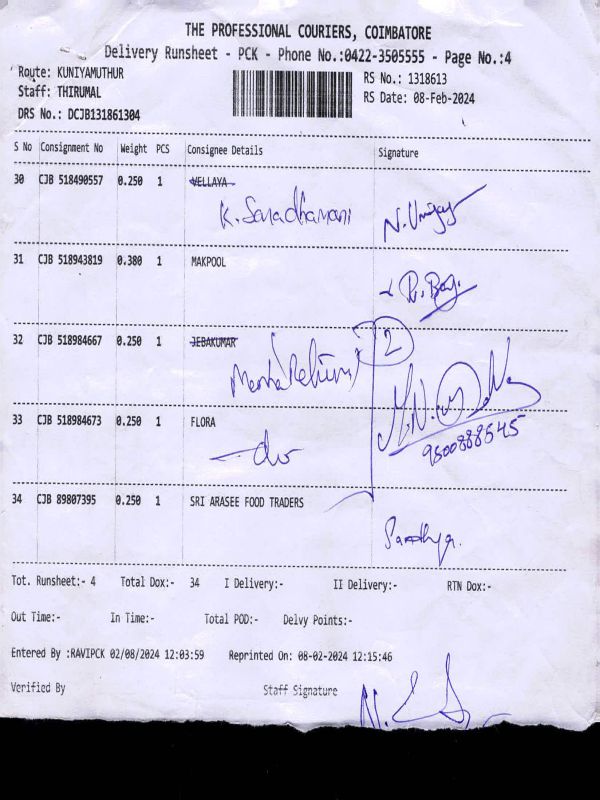 THE PROFESSIONAL COURIERS, COIMBATORE
Delivery Runsheet - PCK - Phone No.:0422-3505555 - Page No.:4
Route: KUNIYAMUTHUR RS No.: 1318613
Staff: THIRUMAL RS Date: 08-Feb-2024
DRS No.: DCJB131861304
S No Consignment No Weight PCS Consignee Details Signature
30 CJB 518490557 0.250 1 VELLAYA
K. Saradhamani
31 CJB 518943819 0.380 1 MAKPOOL
32 CJB 518984667 0.250 1 JEBAKUMAR
2
33 CJB 518984673 0.250 1 FLORA
-do-
9500888545
34 CJB 89807395 0.250 1 SRI ARASEE FOOD TRADERS
Sandhya.
Tot. Runsheet:- 4 Total Dox:- 34 I Delivery:- II Delivery:- RTN Dox:-
Out Time:- In Time:- Total POD:- Delvy Points:-
Entered By :RAVIPCK 02/08/2024 12:03:59 Reprinted On: 08-02-2024 12:15:46
Verified By Staff Signature